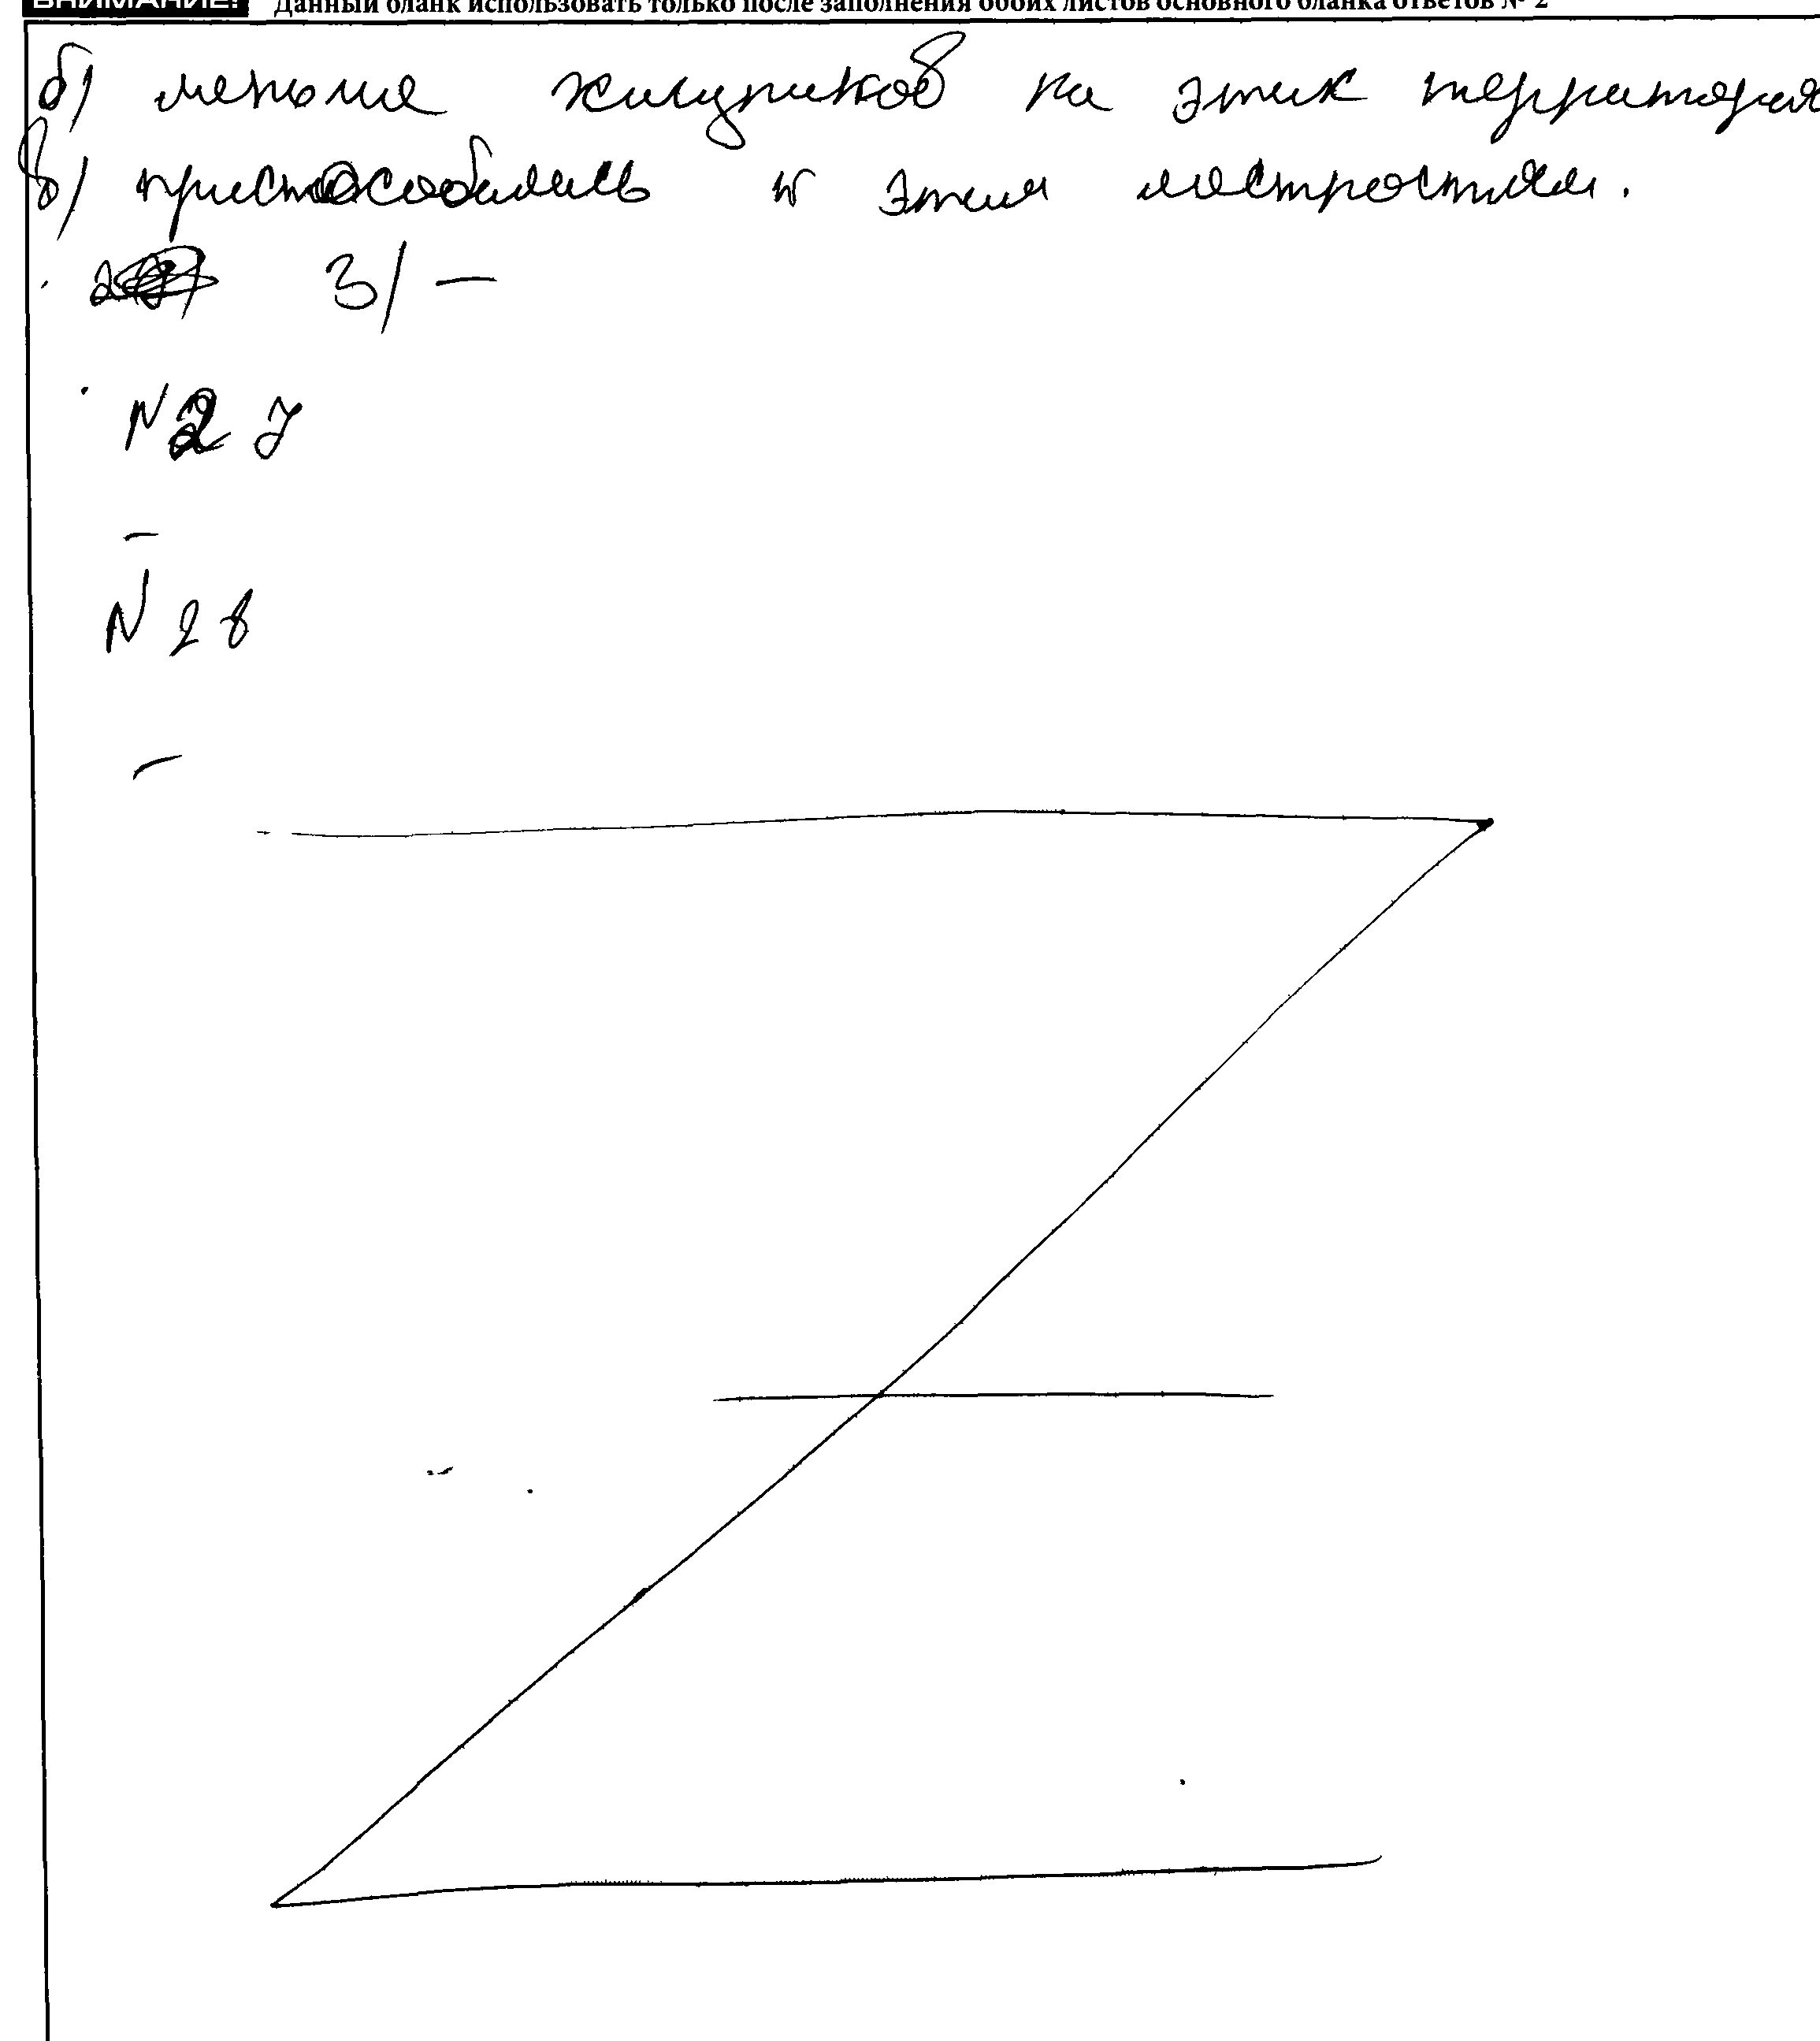 ВНИМАНИЕ! Данный бланк использовать только после заполнения обоих листов основного бланка ответов № 2
б) меньше хищников на этих территория
в) приспособились к этим местностям.
3) –
№27
–
№28
–